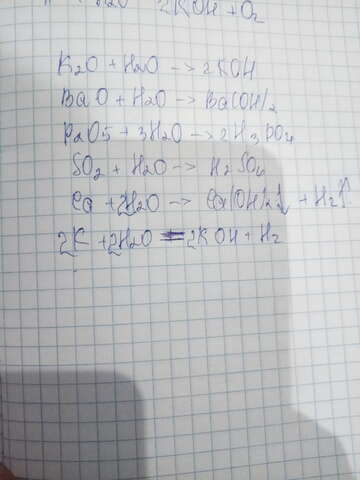 2KOH + O2
K2O + H2O -> 2KOH
BaO + H2O -> Ba(OH)2
P2O5 + 3H2O -> 2H3PO4
SO2 + H2O -> H2SO4
Ca + 2H2O -> Ca(OH)2↓ + H2↑
2K + 2H2O = 2KOH + H2